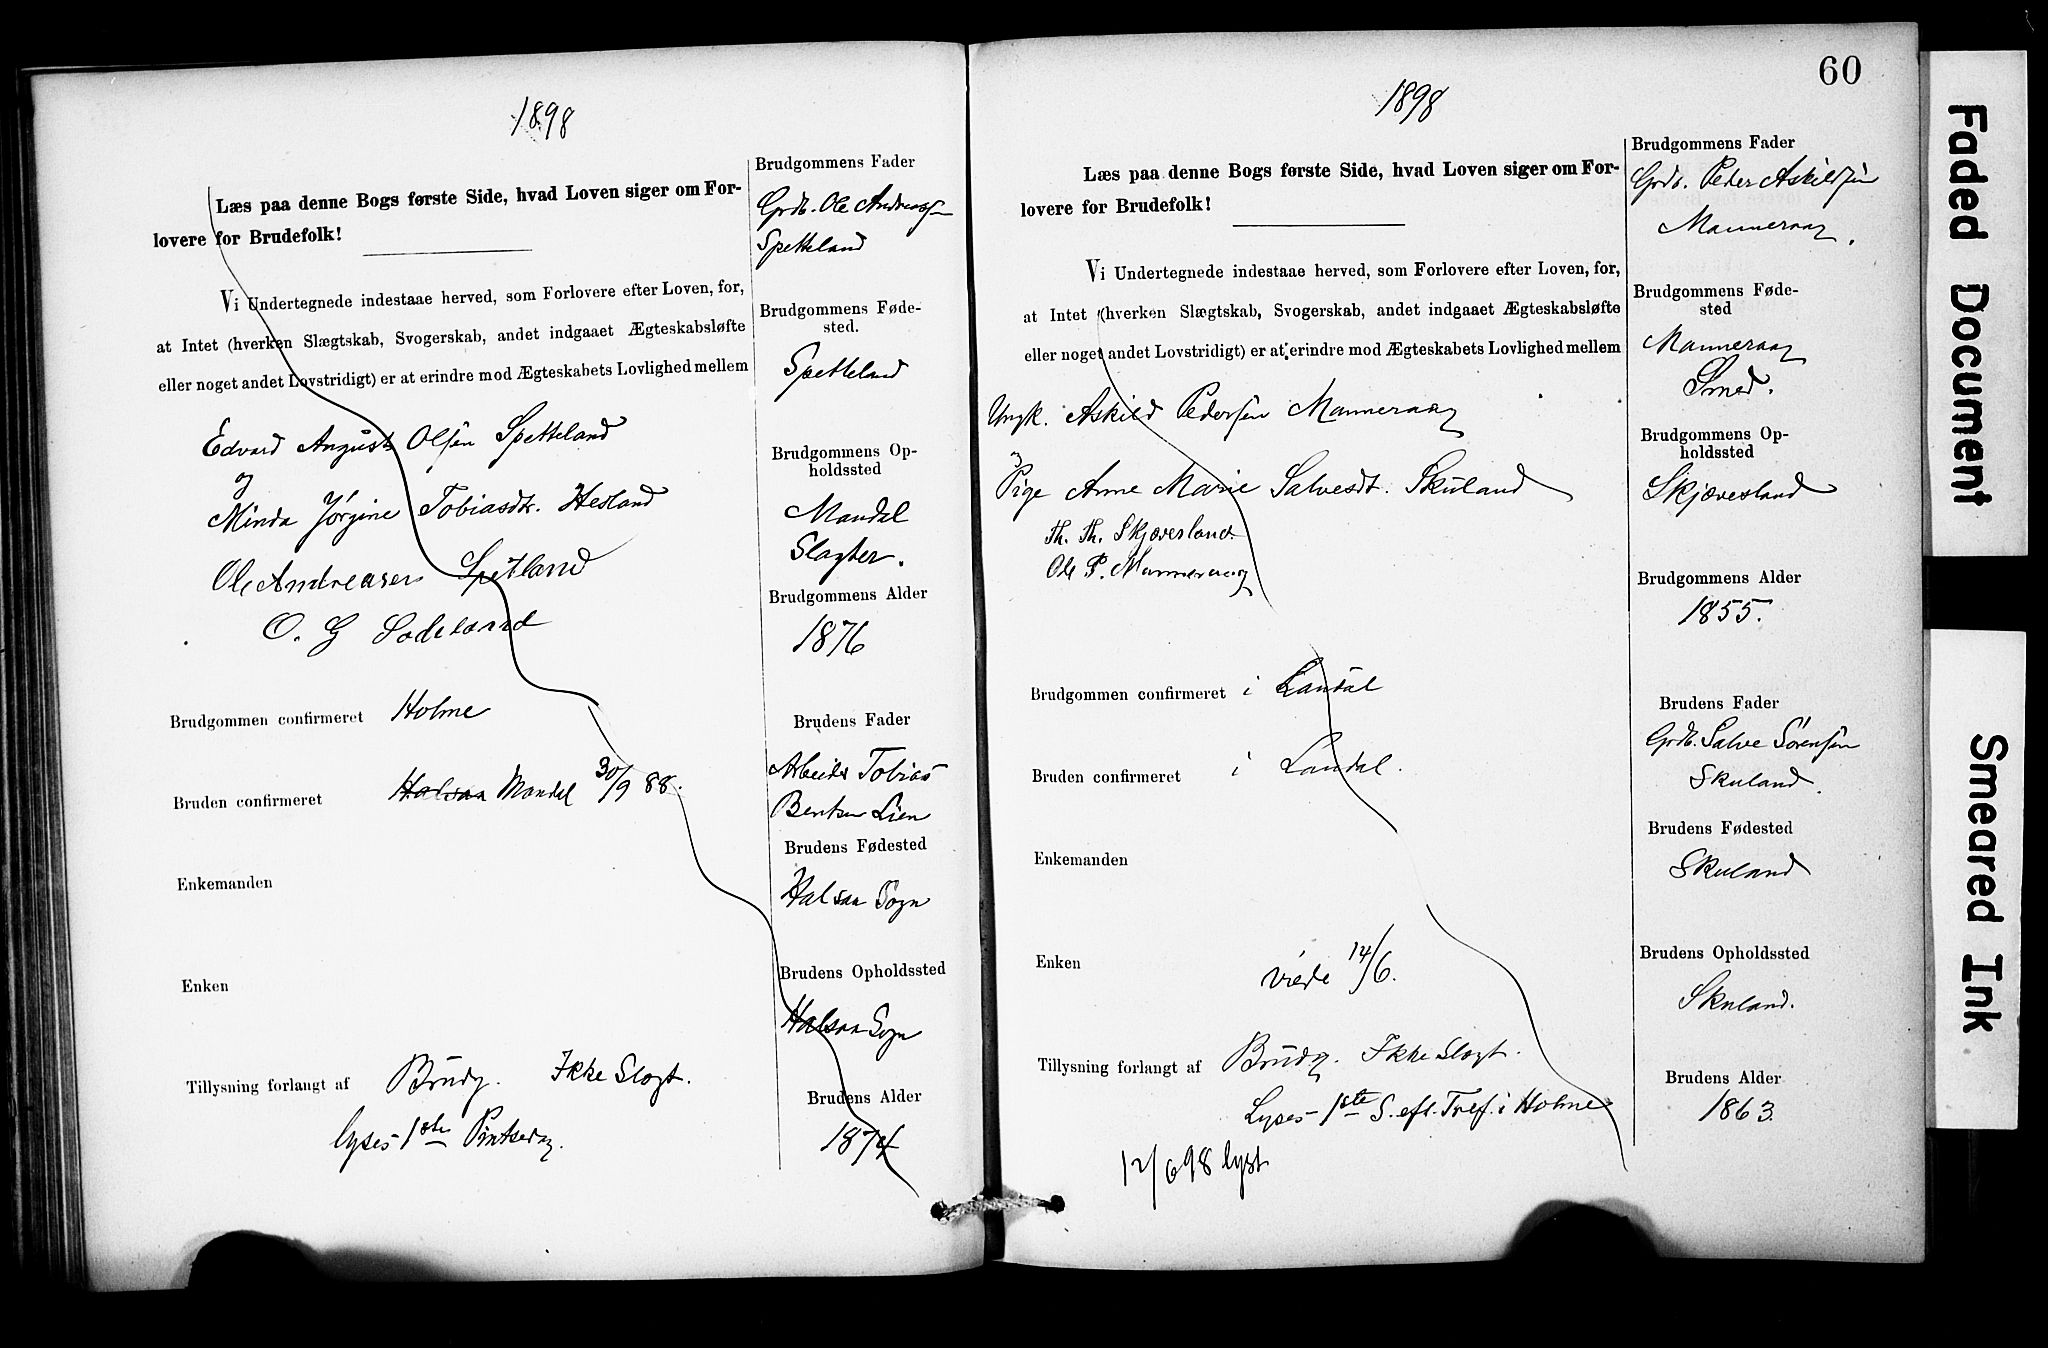 1898
Læs paa denne Bogs første Side, hvad Loven siger om For-
lovere for Brudefolk!
Vi Undertegnede indestaae herved, som Forlovere efter Loven, for,
at Intet (hverken Slægtskab, Svogerskab, andet indgaaet Ægteskabsløfte
eller noget andet Lovstridigt) er at erindre mod Ægteskabets Lovlighed mellem
Edvard August Olsen Spetteland
og
Minda Jørgine Tobiasdtr. Hesland
Ole Andreasen Spetland
O. G Sodeland
Brudgommen confirmeret Holme
Bruden confirmeret Halsaa Mandal 30/9 88.
Enkemanden
Enken
Tillysning forlangt af Brudg. Ikke Slægt.
lyses 1ste Pintsedag.
Brudgommens Fader
Grdb. Ole Andreassen
Spetteland
Brudgommens Føde-
sted.
Spetteland
Brudgommens Op-
holdssted
Mandal
Slagter.
Brudgommens Alder
1876
Brudens Fader
Arbeider Tobias
Bentsen Lien
Brudens Fødested
Halsaa Sogn
Brudens Opholdssted
Halsaa Sogn
Brudens Alder
1874
60
1898
Læs paa denne Bogs første Side, hvad Loven siger om For-
lovere for Brudefolk!
Vi Undertegnede indestaae herved, som Forlovere efter Loven, for,
at Intet (hverken Slægtskab, Svogerskab, andet indgaaet Ægteskabsløfte
eller noget andet Lovstridigt) er at erindre mod Ægteskabets Lovlighed mellem
Ungk. Askild Pedersen Manneraag
og
Pige Anne Marie Salvesdt. Skuland
Th. Th. Skjævesland
Ole P. Manneraag
Brudgommen confirmeret i Laudal
Bruden confirmeret i Laudal.
Enkemanden
Enken
viede 14/6.
Tillysning forlangt af Brudg. Ikke Slægt.
Lyses 1ste S. eft. Tref. i Holme
12/6 98 lyst
Brudgommens Fader
Grdb. Peder Askildsen
Manneraag.
Brudgommens Føde-
sted
Manneraag
Smed.
Brudgommens Op-
holdssted
Skjævesland
Brudgommens Alder
1855.
Brudens Fader
Grdb. Salve Sørensen
Skuland.
Brudens Fødested
Skuland
Brudens Opholdssted
Skuland.
Brudens Alder
1863.
Faded Document
Smeared Ink